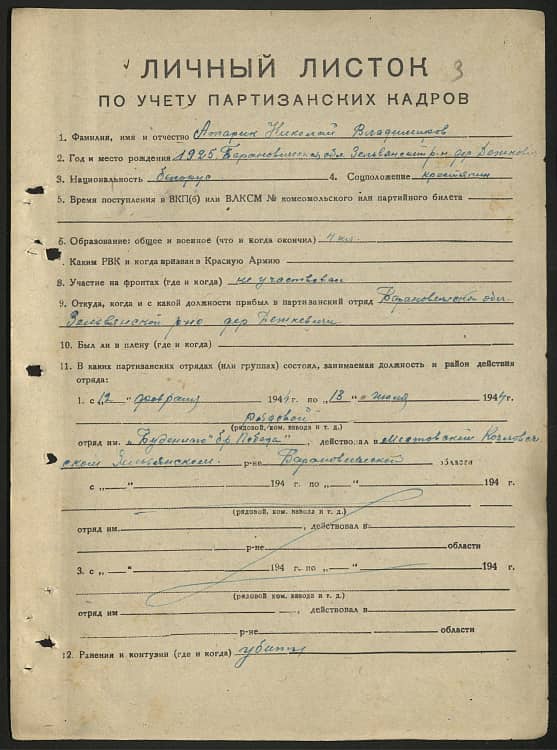 ЛИЧНЫЙ ЛИСТОК 3
ПО УЧЕТУ ПАРТИЗАНСКИХ КАДРОВ
1. Фамилия, имя и отчество Апарик Николай Владимиров
2. Год и место рождения 1925 Барановичская обл Зельвянский р-н дер
3. Национальность белорус 4. Соцположение крестянин
5. Время поступления в ВКП(б) или ВЛКСМ № комсомольского или партийного билета
6. Образование: общее и военное (что и когда окончил) 4 кл.
7. Каким РВК и когда призван в Красную Армию
8. Участие на фронтах (где и когда) не участвовал
9. Откуда, когда и с какой должности прибыл в партизанский отряд Барановичской обл
Зельвянской р-но дер Деткевичи
10. Был ли в плену (где и когда)
11. В каких партизанских отрядах (или группах) состоял, занимаемая должность и район действия
отряда:
1. с „12" февраля 1944 г. по „13" июля 1944 г.
рядовой
(рядовой, ком. взвода и т. д.)
отряд им. „Буденного" бр. Победа", действовал в Мостовский Козловщ
ском Зельвянском. р-не Барановической области
с „ " 194 г. по „ " 194 г.
(рядовой, ком. взвода и т. д.)
отряд им. , действовал в
р-не области
3. с „ " 194 г. по „ " 194 г.
(рядовой, ком. взвода и т. д.)
отряд им , действовал в
р-не области
12. Ранения и контузии (где и когда) убитт